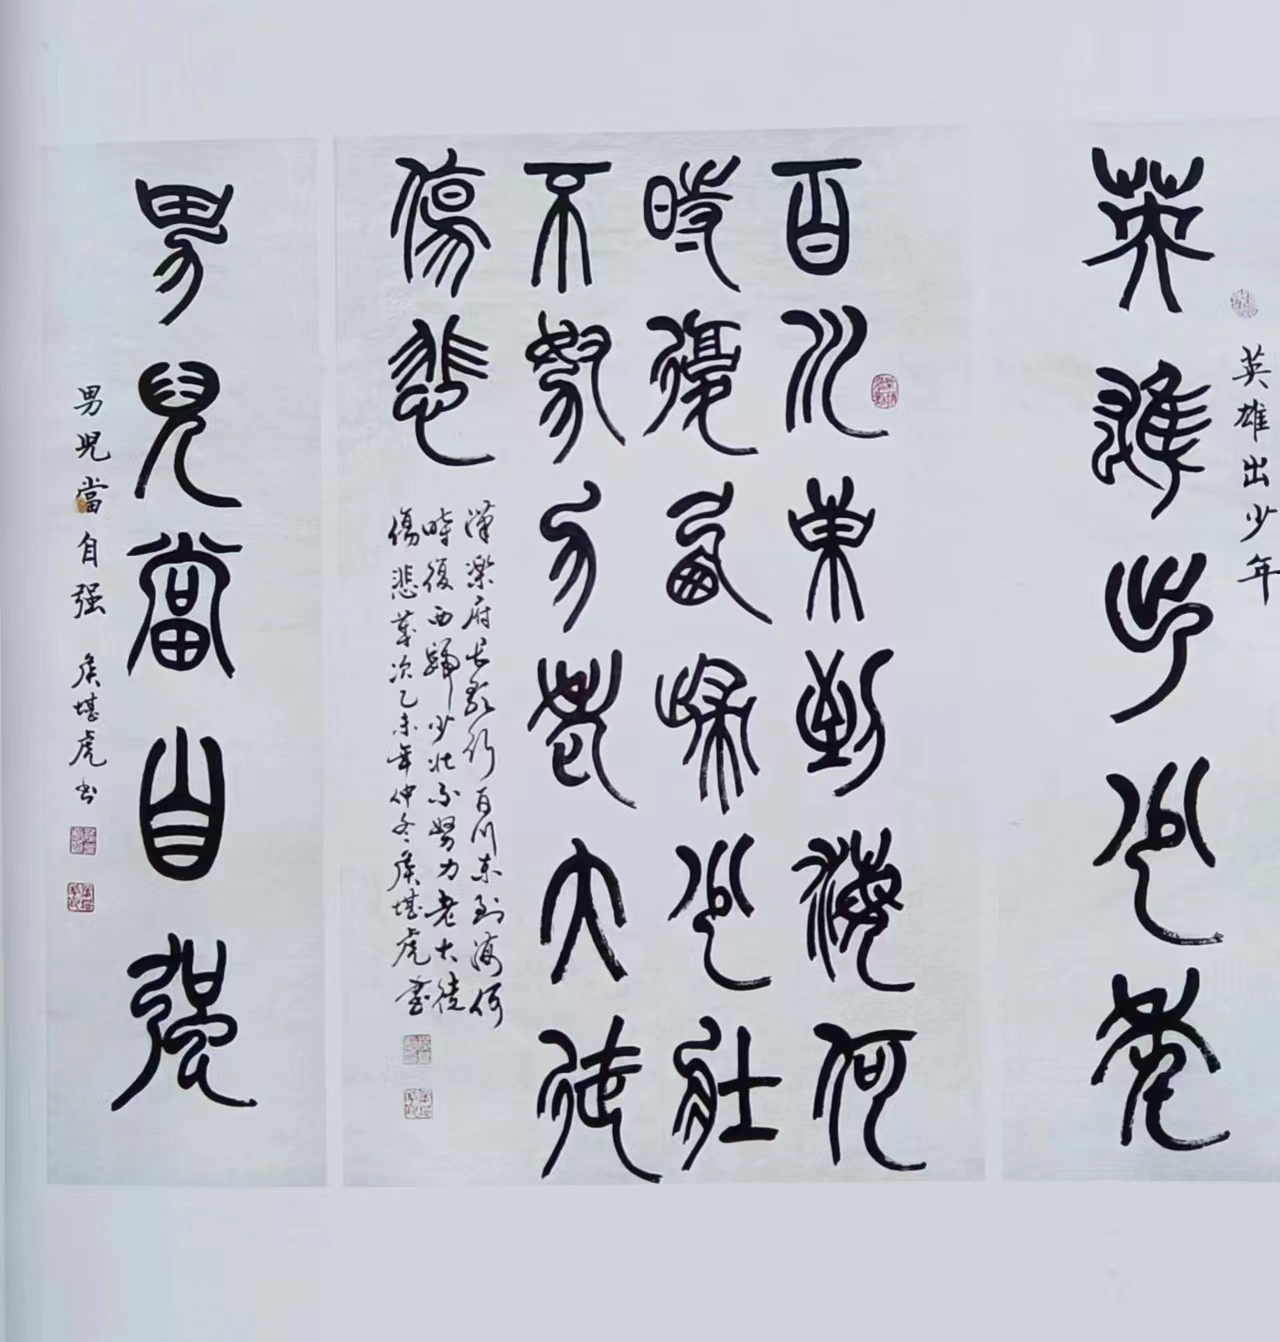 英雄出少年
英雄出少年
百川東到海何
時復西歸少壯
不努力老大徒
傷悲
漢樂府長歌行百川東到海何
時復西歸少壯不努力老大徒
傷悲歲次乙未年仲冬侯堪虎書
男兒當自強
男兒當自强 侯堪虎书